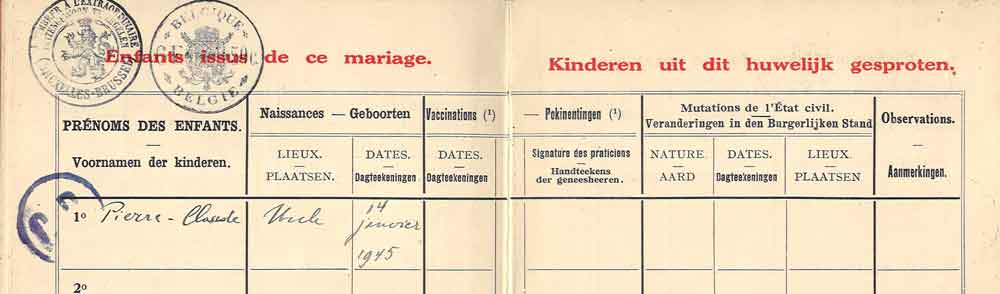 TIMBRE A L'EXTRAORDINAIRE
BRUXELLES-BRUSSEL
BELGIQUE
BELGIE
Enfants issus de ce mariage.
Kinderen uit dit huwelijk gesproten.
PRÉNOMS DES ENFANTS.
Voornamen der kinderen.
Naissances — Geboorten
Vaccinations (¹)
— Pokinentingen (¹)
Mutations de l'État civil.
Veranderingen in den Burgerlijken Stand
Observations.
Aanmerkingen.
LIEUX.
PLAATSEN.
DATES.
Dagteekeningen
DATES.
Dagteekeningen
Signature des praticiens
Handteekens
der geneesheeren.
NATURE
AARD
DATES.
Dagteekeningen
LIEUX.
PLAATSEN.
1º Pierre-Claude
Uccle
14
janvier
1945
2º